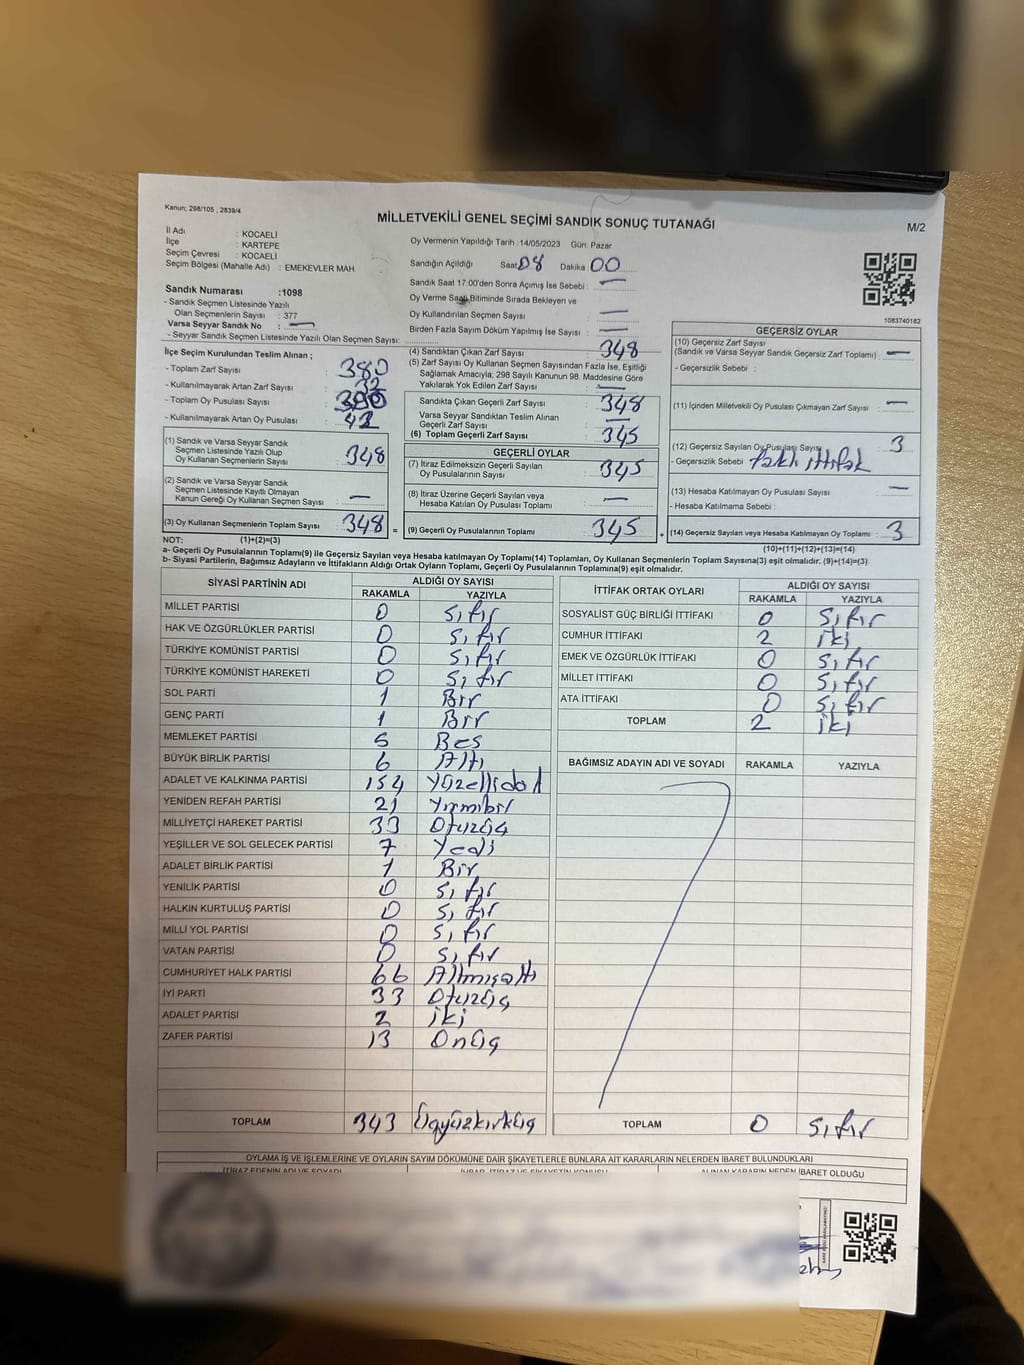 Kanun; 298/105 , 2839/4
MİLLETVEKİLİ GENEL SEÇİMİ SANDIK SONUÇ TUTANAĞI
M/2
İl Adı : KOCAELİ
İlçe : KARTEPE
Seçim Çevresi : KOCAELİ
Seçim Bölgesi (Mahalle Adı) : EMEKEVLER MAH
Oy Vermenin Yapıldığı Tarih :14/05/2023 Gün: Pazar
Sandığın Açıldığı Saat 08 Dakika 00
Sandık Saat 17.00'den Sonra Açımış İse Sebebi : —
Oy Verme Saati Bitiminde Sırada Bekleyen ve
Oy Kullandırılan Seçmen Sayısı : —
Birden Fazla Sayım Döküm Yapılmış İse Sayısı : —
1083740182
Sandık Numarası :1098
- Sandık Seçmen Listesinde Yazılı
Olan Seçmenlerin Sayısı : 377
Varsa Seyyar Sandık No : —
- Seyyar Sandık Seçmen Listesinde Yazılı Olan Seçmen Sayısı:
İlçe Seçim Kurulundan Teslim Alınan ;
- Toplam Zarf Sayısı : 380
- Kullanılmayarak Artan Zarf Sayısı : 32
- Toplam Oy Pusulası Sayısı :
- Kullanılmayarak Artan Oy Pusulası : 42
(1) Sandık ve Varsa Seyyar Sandık
Seçmen Listesinde Yazılı Olup
Oy Kullanan Seçmenlerin Sayısı : 348
(2) Sandık ve Varsa Seyyar Sandık
Seçmen Listesinde Kayıtlı Olmayan
Kanun Gereği Oy Kullanan Seçmen Sayısı : —
(3) Oy Kullanan Seçmenlerin Toplam Sayısı : 348 =
(4) Sandıktan Çıkan Zarf Sayısı : 348
(5) Zarf Sayısı Oy Kullanan Seçmen Sayısından Fazla İse, Eşitliği
Sağlamak Amacıyla, 298 Sayılı Kanunun 98. Maddesine Göre
Yakılarak Yok Edilen Zarf Sayısı : —
Sandıkta Çıkan Geçerli Zarf Sayısı : 348
Varsa Seyyar Sandıktan Teslim Alınan
Geçerli Zarf Sayısı : —
(6) Toplam Geçerli Zarf Sayısı : 345
GEÇERLİ OYLAR
(7) İtiraz Edilmeksizin Geçerli Sayılan
Oy Pusulalarının Sayısı : 345
(8) İtiraz Üzerine Geçerli Sayılan veya
Hesaba Katılan Oy Pusulası Toplamı : —
(9) Geçerli Oy Pusulalarının Toplamı : 345 +
GEÇERSİZ OYLAR
(10) Geçersiz Zarf Sayısı
(Sandık ve Varsa Seyyar Sandık Geçersiz Zarf Toplamı) : —
- Geçersizlik Sebebi :
(11) İçinden Milletvekili Oy Pusulası Çıkmayan Zarf Sayısı : —
(12) Geçersiz Sayılan Oy Pusulası Sayısı : 3
- Geçersizlik Sebebi : farklı ittifak
(13) Hesaba Katılmayan Oy Pusulası Sayısı : —
- Hesaba Katılmama Sebebi :
(14) Geçersiz Sayılan veya Hesaba Katılmayan Oy Toplamı : 3
NOT: (1)+(2)=(3)
(10)+(11)+(12)+(13)=(14)
a- Geçerli Oy Pusulalarının Toplamı(9) ile Geçersiz Sayılan veya Hesaba katılmayan Oy Toplamı(14) Toplamları, Oy Kullanan Seçmenlerin Toplam Sayısına(3) eşit olmalıdır. (9)+(14)=(3)
b- Siyasi Partilerin, Bağımsız Adayların ve İttifakların Aldığı Ortak Oyların Toplamı, Geçerli Oy Pusulalarının Toplamına(9) eşit olmalıdır.
SİYASİ PARTİNİN ADI ALDIĞI OY SAYISI
RAKAMLA YAZIYLA
MİLLET PARTİSİ 0 Sıfır
HAK VE ÖZGÜRLÜKLER PARTİSİ 0 Sıfır
TÜRKİYE KOMÜNİST PARTİSİ 0 Sıfır
TÜRKİYE KOMÜNİST HAREKETİ 0 Sıfır
SOL PARTİ 1 Bir
GENÇ PARTİ 1 Bir
MEMLEKET PARTİSİ 5 Beş
BÜYÜK BİRLİK PARTİSİ 6 Altı
ADALET VE KALKINMA PARTİSİ 154 Yüzellidört
YENİDEN REFAH PARTİSİ 21 Yirmibir
MİLLİYETÇİ HAREKET PARTİSİ 33 Otuzüç
YEŞİLLER VE SOL GELECEK PARTİSİ 7 Yedi
ADALET BİRLİK PARTİSİ 1 Bir
YENİLİK PARTİSİ 0 Sıfır
HALKIN KURTULUŞ PARTİSİ 0 Sıfır
MİLLİ YOL PARTİSİ 0 Sıfır
VATAN PARTİSİ 0 Sıfır
CUMHURİYET HALK PARTİSİ 66 Altmışaltı
İYİ PARTİ 33 Otuzüç
ADALET PARTİSİ 2 iki
ZAFER PARTİSİ 13 Onüç
TOPLAM 343 Üçyüzkırküç
İTTİFAK ORTAK OYLARI ALDIĞI OY SAYISI
RAKAMLA YAZIYLA
SOSYALİST GÜÇ BİRLİĞİ İTTİFAKI 0 Sıfır
CUMHUR İTTİFAKI 2 iki
EMEK VE ÖZGÜRLÜK İTTİFAKI 0 Sıfır
MİLLET İTTİFAKI 0 Sıfır
ATA İTTİFAKI 0 Sıfır
TOPLAM 2 iki
BAĞIMSIZ ADAYIN ADI VE SOYADI RAKAMLA YAZIYLA
TOPLAM 0 Sıfır
OYLAMA İŞ VE İŞLEMLERİNE VE OYLARIN SAYIM DÖKÜMÜNE DAİR ŞİKAYETLERLE BUNLARA AİT KARARLARIN NELERDEN İBARET BULUNDUKLARI
İTİRAZ EDENİN ADI VE SOYADI İHBAR, İTİRAZ VE ŞİKAYETİN KONUSU ALINAN KARARIN NEDEN İBARET OLDUĞU